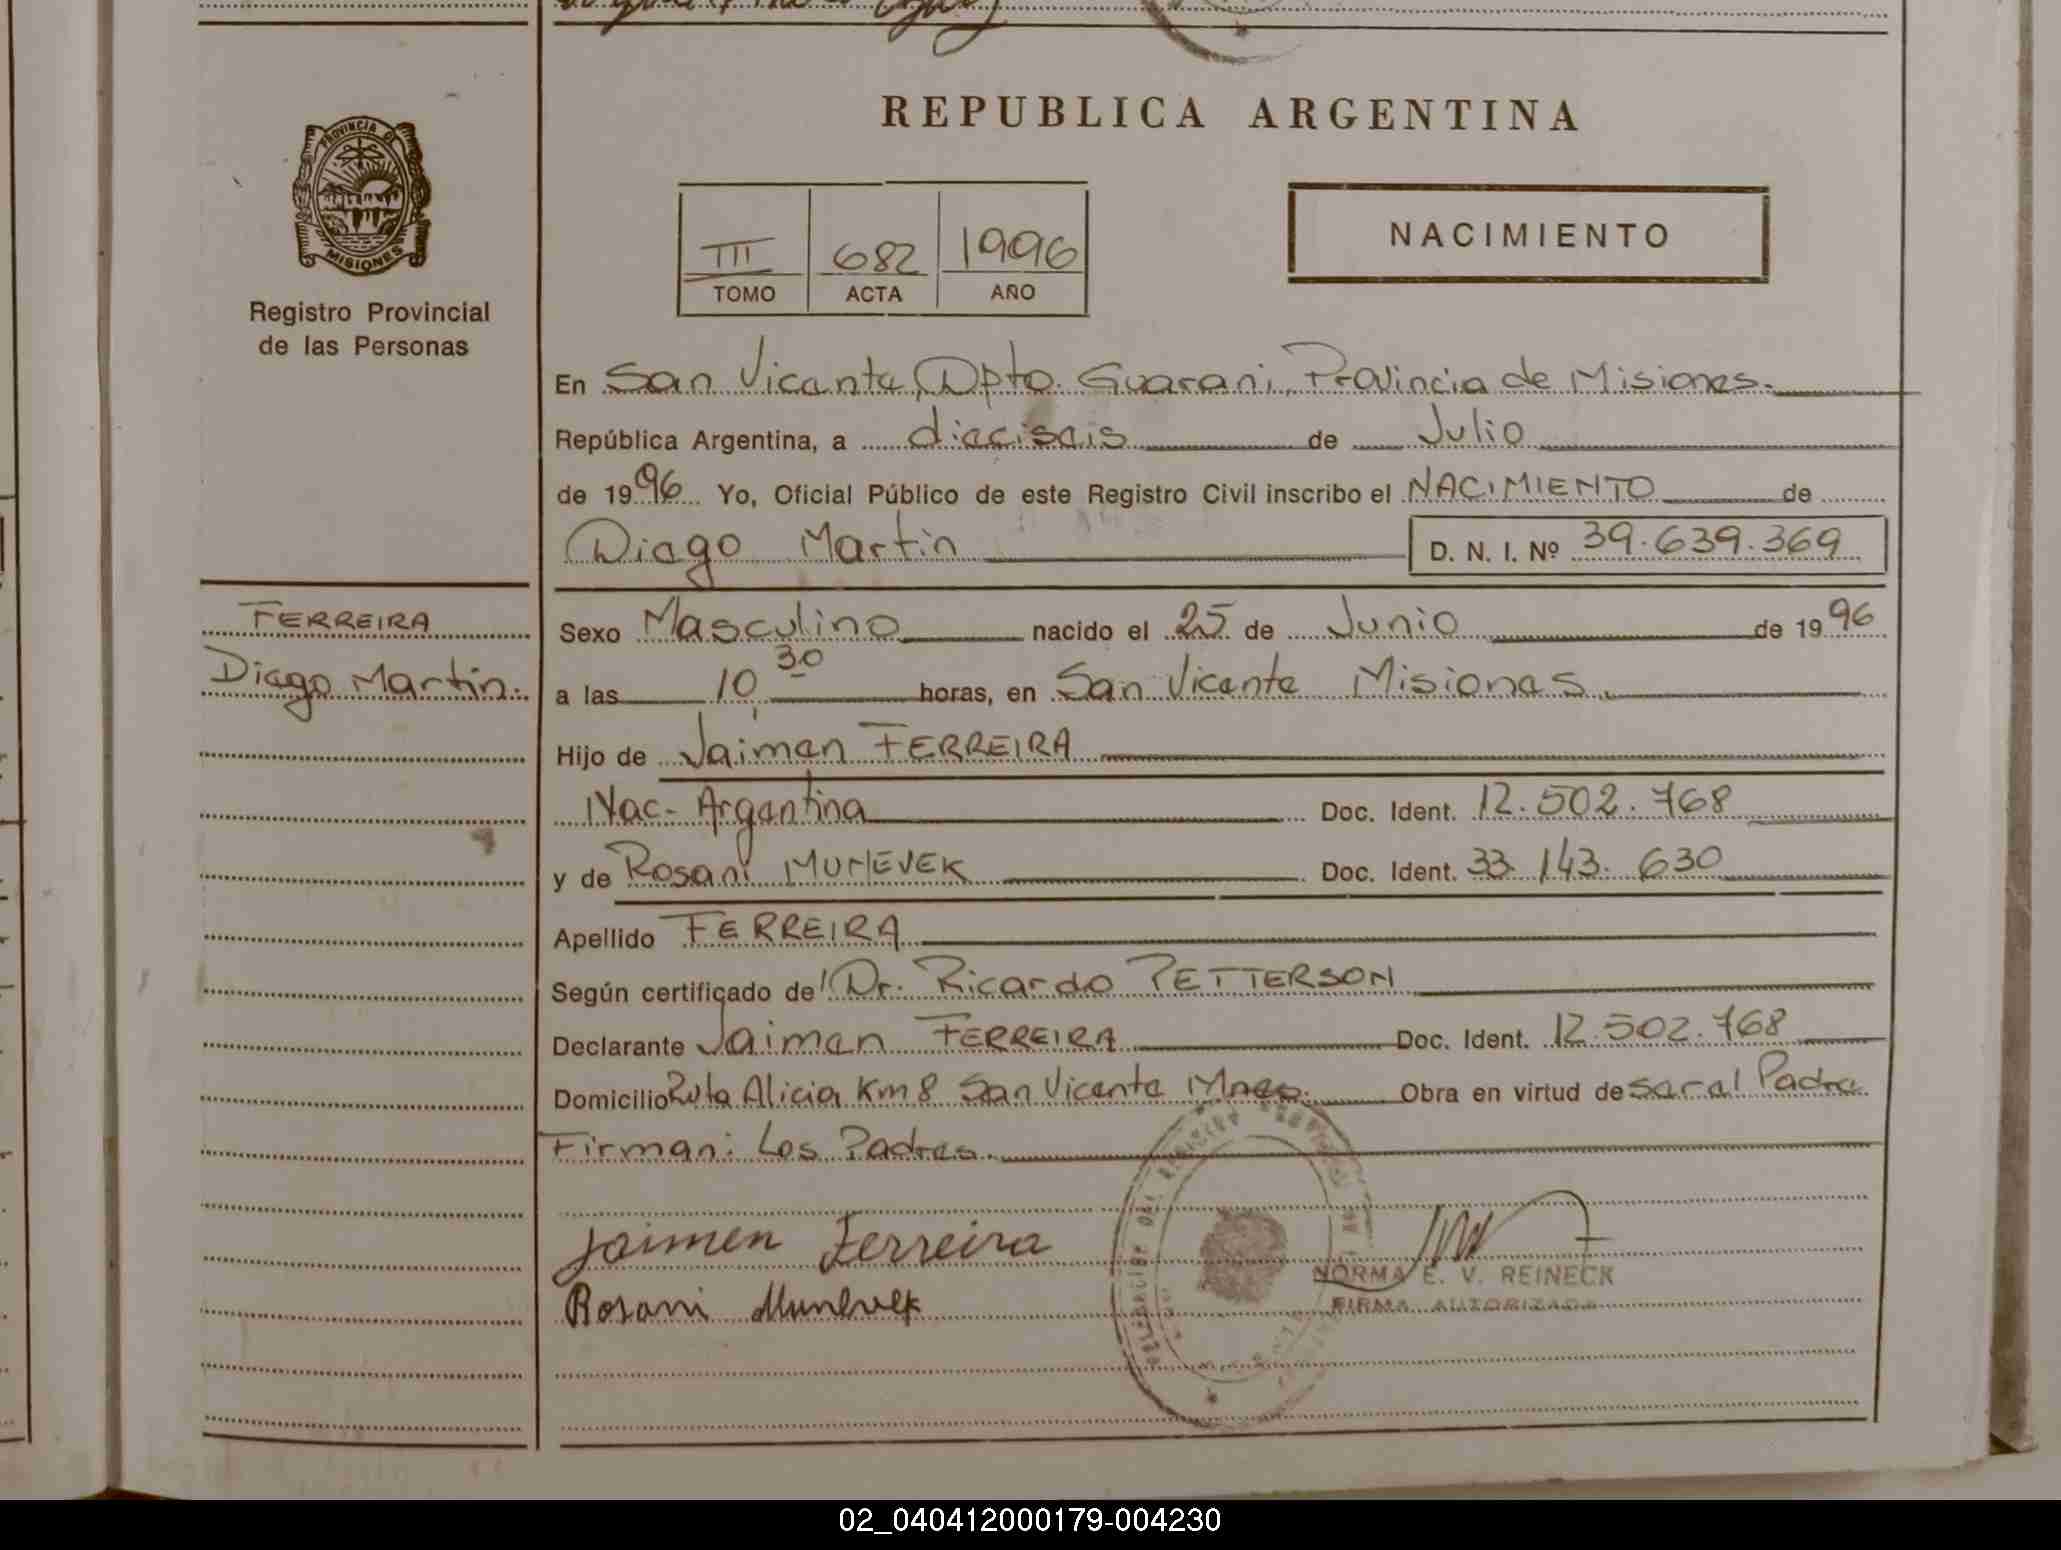 REPUBLICA ARGENTINA
PROVINCIA DE
MISIONES
Registro Provincial
de las Personas
III 682 1996
TOMO ACTA AÑO
NACIMIENTO
En San Vicente, Dpto. Guarani, Provincia de Misiones.
República Argentina, a dieciseis de Julio
de 1996 Yo, Oficial Público de este Registro Civil inscribo el NACIMIENTO de
Diego Martin D. N. I. Nº 39.639.369
FERREIRA
Diego Martin.
Sexo Masculino nacido el 25 de Junio de 1996
a las 10,30 horas, en San Vicente Misiones.
Hijo de Jaimen FERREIRA
Nac- Argentina Doc. Ident. 12.502.768
y de Rosani MUNEVEK Doc. Ident. 33.143.630
Apellido FERREIRA
Según certificado de Dr. Ricardo PETTERSON
Declarante Jaimen FERREIRA Doc. Ident. 12.502.768
Domicilio Ruta Alicia Km 8 San Vicente Mnes. Obra en virtud de ser el Padre
Firman: Los Padres.
Jaimen Ferreira
Rosani Munevek
NORMA E. V. REINECK
FIRMA AUTORIZADA
02_040412000179-004230